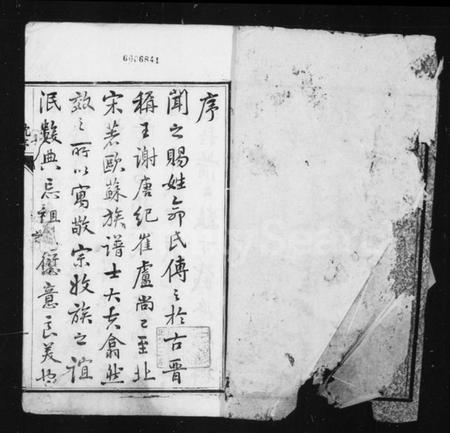 6666841
序
聞之賜姓命氏傳之於古晋
稱王謝唐紀崔盧尚已至北
宋若歐蘇族譜士大夫翕然
效之所以寓敬宗收族之誼
泯數典忘祖之愆意良美也